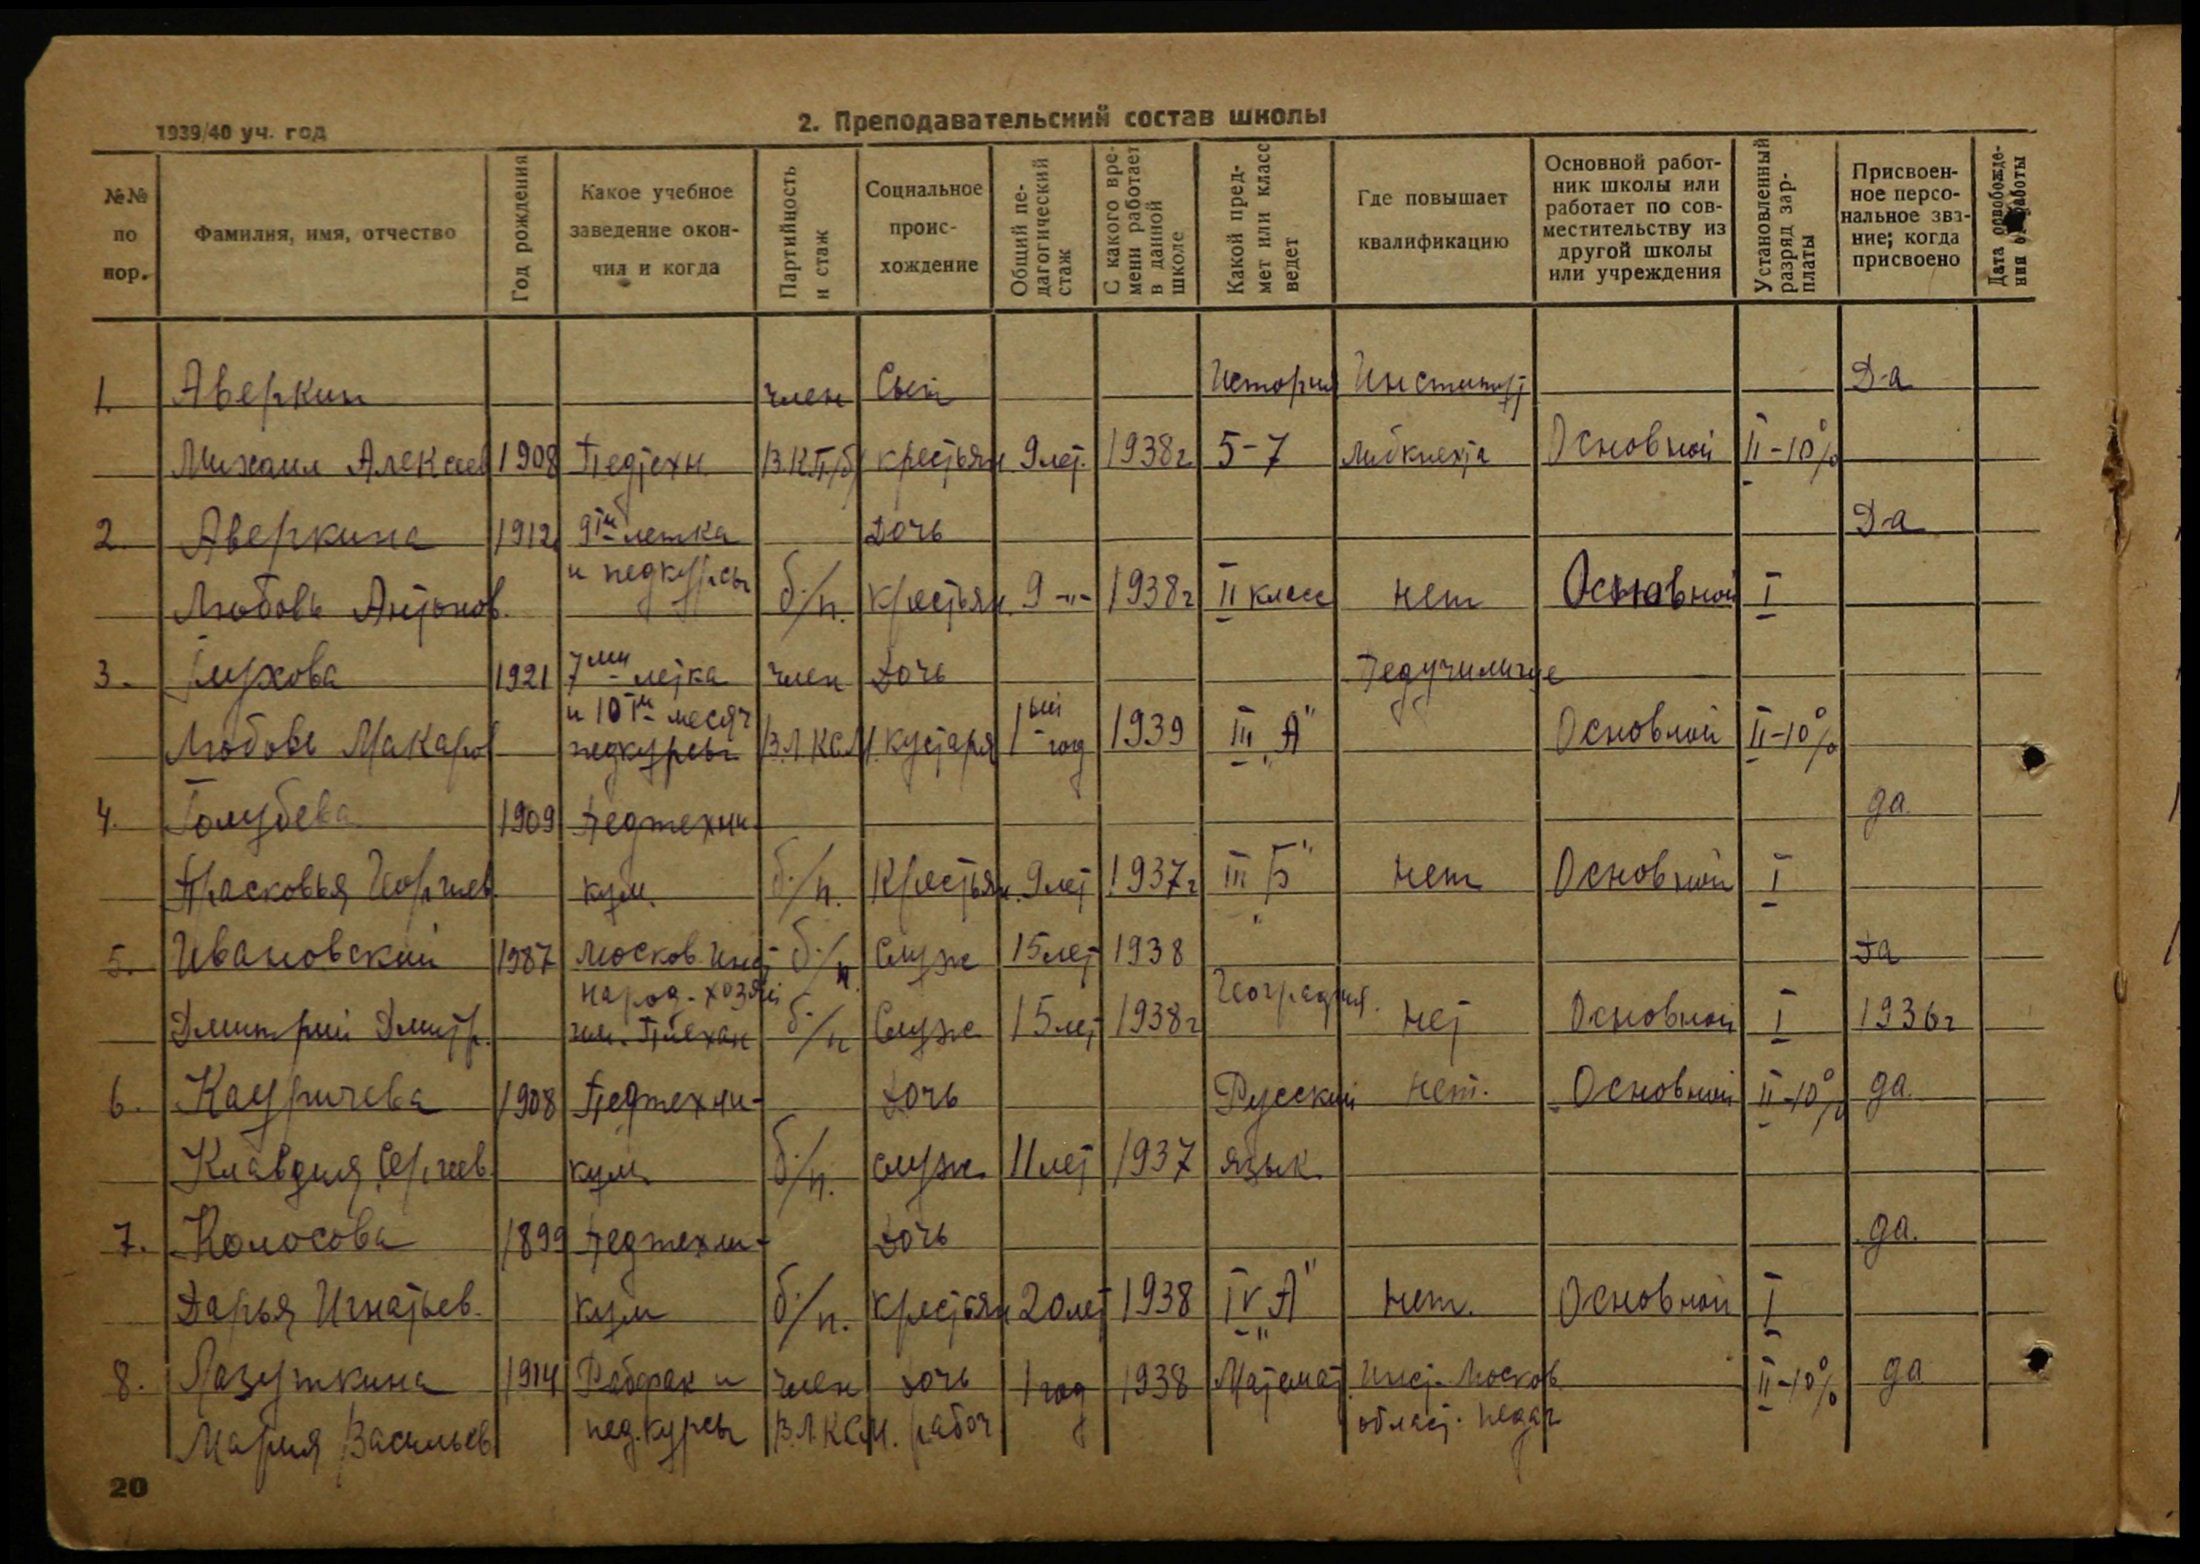 1939/40 уч. год
2. Преподавательский состав школы
№№ по пор.
Фамилия, имя, отчество
Год рождения
Какое учебное заведение окончил и когда
Партийность и стаж
Социальное происхождение
Общий педагогический стаж
С какого времени работает в данной школе
Какой предмет или класс ведет
Где повышает квалификацию
Основной работник школы или работает по совместительству из другой школы или учреждения
Установленный разряд зарплаты
Присвоенное персональное звание; когда присвоено
Дата освобождения от работы
1. Аверкин член Сын История Институт Да
Михаил Алексеев 1908 Педтехн В.К.П/б/ крестьян 9 лет. 1938г. 5-7 Либкнехта Основной II-10%
2. Аверкина 1912 9ти летка Дочь Да
и педкурсы
Любовь Антонов. б/п. крестьян. 9 -"- 1938г II класс нет Основной I
3. Глухова 1921 7ми летка член Дочь Педучилище
и 10ти месяч
Любовь Макаров педкурсы В.Л.К.С.М. кустаря 1ый год 1939 III "А" Основной II-10%
4. Голубева 1909 Педтехни- да.
Прасковья Георгиев. кум. б/п. Крестьян. 9 лет 1937г III "Б" нет Основной I
5. Ивановский 1987 Москов. Инст б/п. Служ 15 лет 1938 Да
народ-хозяй География.
Дмитрий Дмитр. им. Плехан б/п Служ. 15 лет 1938г нет Основной I 1936г
6. Кауричева 1908 Педтехни- Дочь Русский нет. Основной II-10% да.
Клавдия Сергеев. кум б/п. служ. 11 лет 1937 язык.
7. Колосова 1899 Педтехни- Дочь да.
Дарья Игнатьев. кум б/п. Крестьян 20 лет 1938 IV "А" нет. Основной I
8. Лазуткина 1914 Рабфак и член дочь 1 год 1938 Математ Инст. Москов. II-10% да
Мария Васильев. пед.курсы В.Л.К.С.М. рабоч област. педаг
20